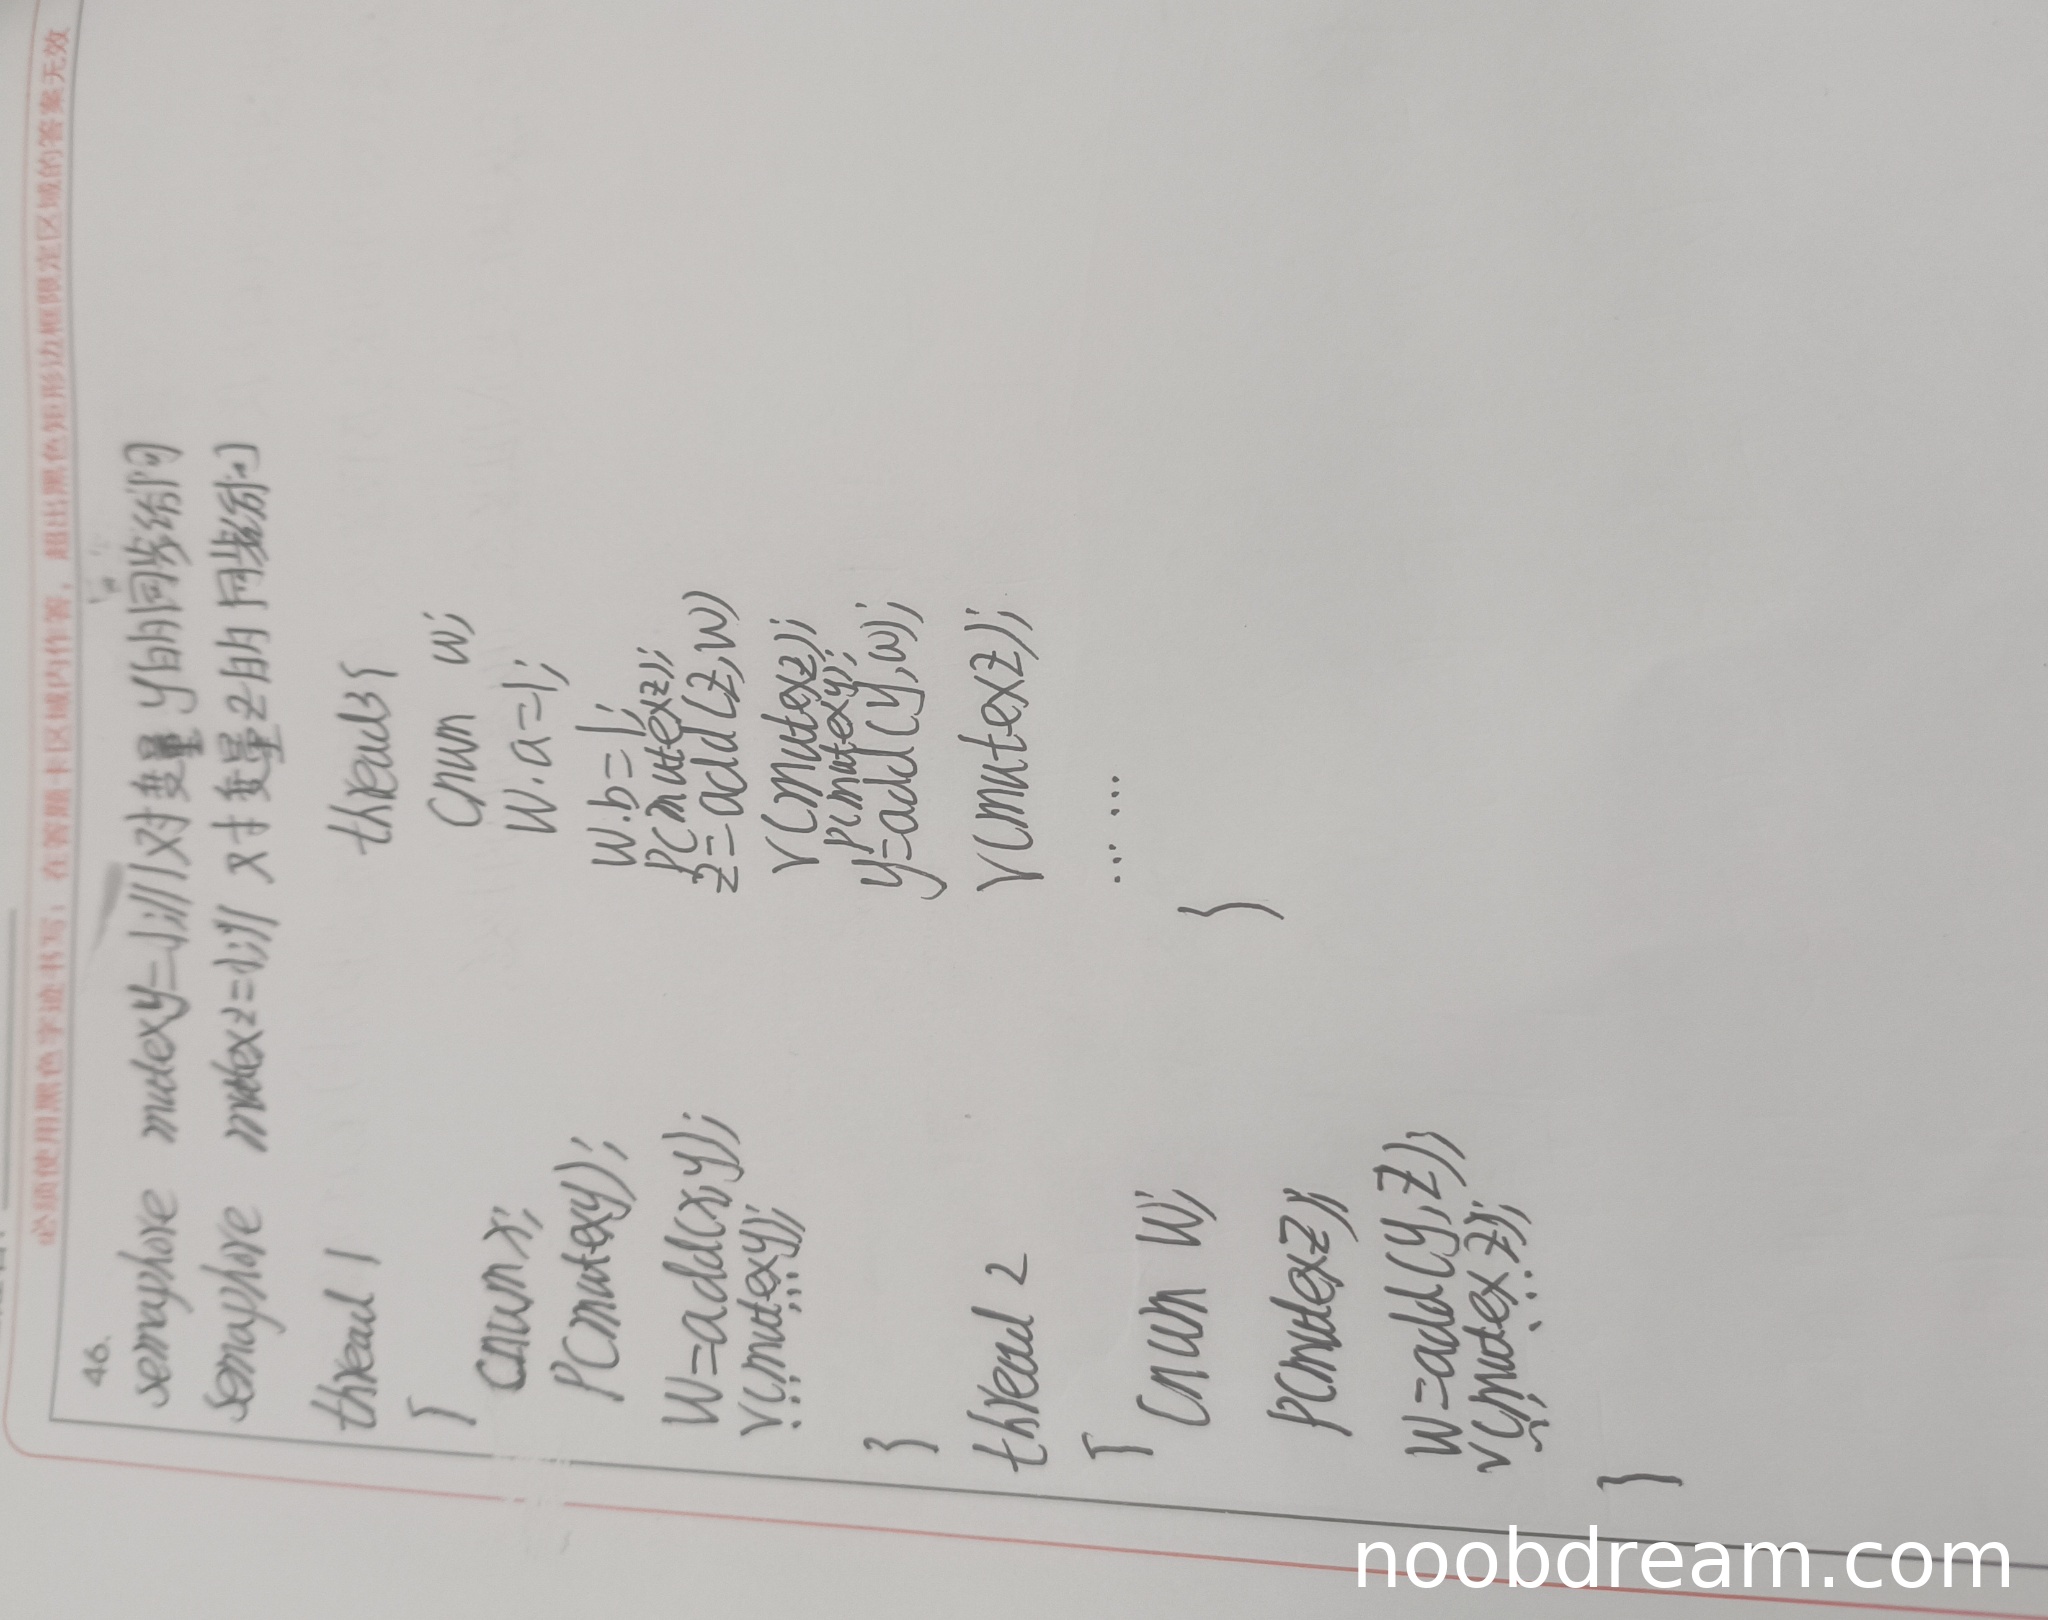 必须使用黑色字迹书写；在答题卡区域内作答，超出黑色矩形边框限定区域的答案无效
46.
semaphore mutexy=1;//对变量y的同步访问
semaphore mutexz=1;//对变量z的同步访问
thread 1
{
cnum x;
P(mutexy);
W=add(x,y);
V(mutexy);
……
}
thread 2
{
cnum w;
P(mutexz);
W=add(y,z);
V(mutexz);
……
}
thread3{
cnum w;
w.a=1;
w.b=1;
P(mutexz);
z=add(z,w)
V(mutexz);
P(mutexy);
y=add(y,w);
V(mutexz);
……
}
noobdream.com